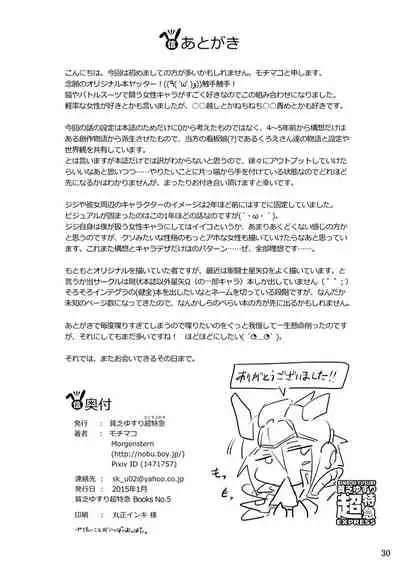 あとがき
こんにちは、今回は初めましての方が多いかもしれません。モチマコと申します。
念願のオリジナル本ヤッター！((٩( 'ω' )و))触手触手！
鎧やバトルスーツで闘う女性キャラがすごく好きなのでこの組み合わせになりました。
軽率な女性が好きとかも言いましたが、○○越しとかねちねち○○責めとかも好きです。
今回の話の設定は本誌のためだけに0から考えたものではなく、4～5年前から構想だけは
ある創作物語から派生させたもので、当方の看板娘(?)であるくろえさん達の物語と設定や
世界観を共有しています。
とは言いますが本誌だけでは訳がわからないと思うので、徐々にアウトプットしていけたら
らいいなあと思いつつ……やりたいことに片っ端から手を付けている状態なのでどれほど
先になるかはわかりませんが、まったりお付き合い頂けますと幸いです。
ジジや周辺のキャラクターのイメージは2年ほど前にはすでに固定していました。
ビジュアルが固まったのはこの1年ほどの話なのですが(´・ω・｀)。
ジジ自身は僕が扱う女性キャラにしてはイイコというか、あまりあくどくない感じの方か
と思うのですが、クソみたいな性格のもっとアホな女性も描いていけたらなあと思ってい
ます。これまた構想とキャラデザだけはのパターン…ぜ、全部理想です……。
もともとオリジナルを描いていた者ですが、最近は聖闘士星矢Ωをよく描いています。と
言うか当サークルは現状本誌以外星矢Ω（の一部キャラ）本しか出していません（＾＾；）
そろそろインテグラの(健全)本を出したいなとネームを切っている段階ですが、なんだか
未知のページ数になってきたので、なんかしらのぺらい本の方が先に出るかもしれません。
あとがきで毎度喋りすぎてしまうので喋りたいのをぐっと我慢して一生懸命削ったのです
が、それにしてもまだ多いですね！　ほどほどにしたい(´◔‿◔`)
それでは、またお会いできるその日まで。
奥付
発行 ： 貧乏ゆすり超特急
著者 ： モチマコ
Morgenstern
(http://nobu.boy.jp/)
Pixiv ID (1471757)
連絡先 ： sk_u02@yahoo.co.jp
発行日 ： 2015年1月
貧乏ゆすり超特急 Books No.5
印刷 ： 丸正インキ 様
ありがとうございました!!
貧乏ゆすり
超特急
EXPRESS
30